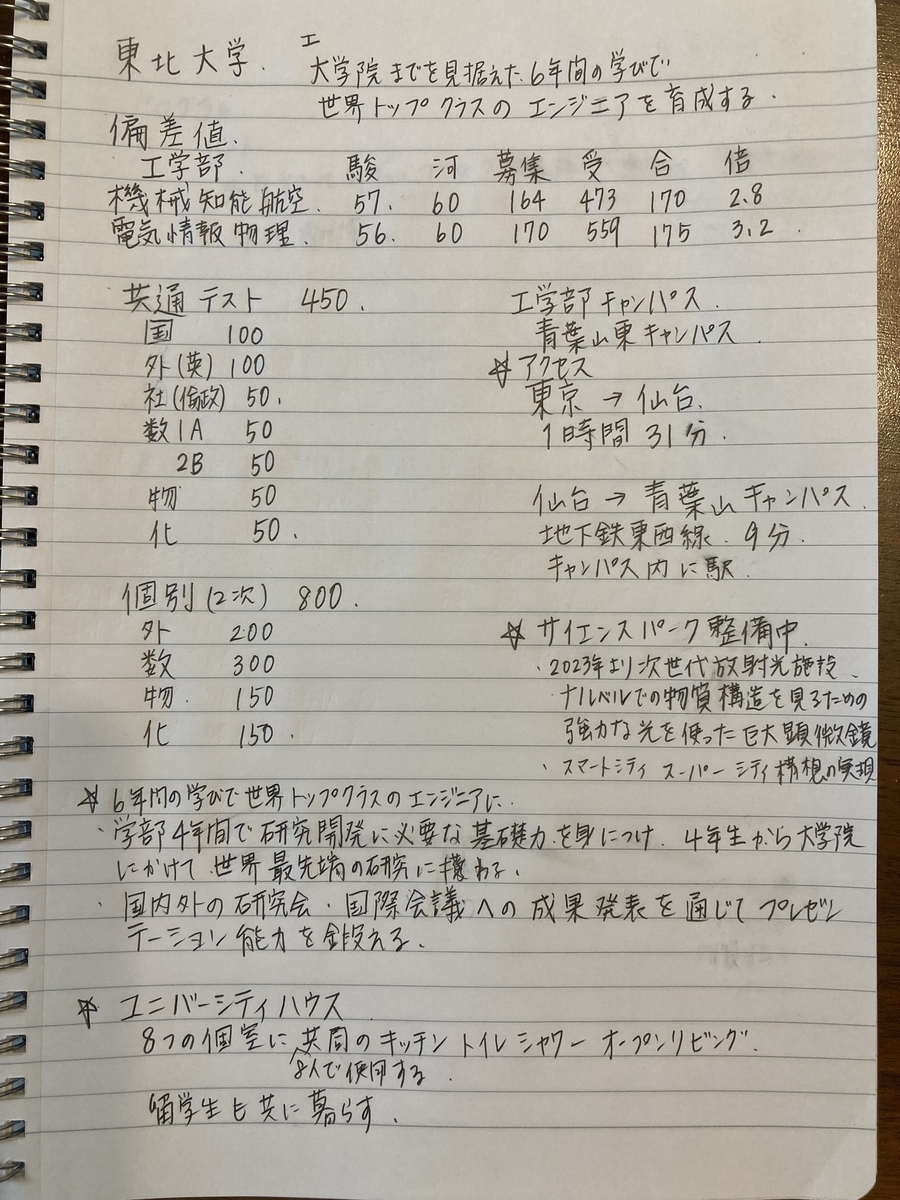 東北大学. 工
大学院までを見据えた6年間の学びで
世界トップクラスのエンジニアを育成する.
偏差値.
工学部. 駿 河 募集 受 合 倍
機械知能航空. 57. 60 164 473 170 2.8
電気情報物理. 56. 60 170 559 175 3.2.
共通テスト 450.
国 100
外(英) 100
社(倫政) 50.
数1A 50
2B 50
物 50
化 50.
個別(2次) 800.
外 200
数 300
物. 150
化 150.
工学部キャンパス.
青葉山東キャンパス.
☆アクセス
東京→仙台.
1時間31分.
仙台→青葉山キャンパス.
地下鉄東西線. 9分.
キャンパス内に駅.
☆サイエンスパーク整備中.
・2023年より次世代放射光施設.
ナルベルでの物質構造を見るための
強力な光を使った巨大顕微鏡
・スマートシティ スーパーシティ構想の実現
☆6年間の学びで世界トップクラスのエンジニアに.
・学部4年間で研究開発に必要な基礎力を身につけ. 4年生から大学院
にかけて世界最先端の研究に携わる.
・国内外の研究会・国際会議への成果発表を通じてプレゼン
テーション能力を鍛える.
☆ユニバーシティハウス
8つの個室に共同のキッチン トイレ シャワー オープンリビング.
8人で使用する.
留学生も共に暮らす.